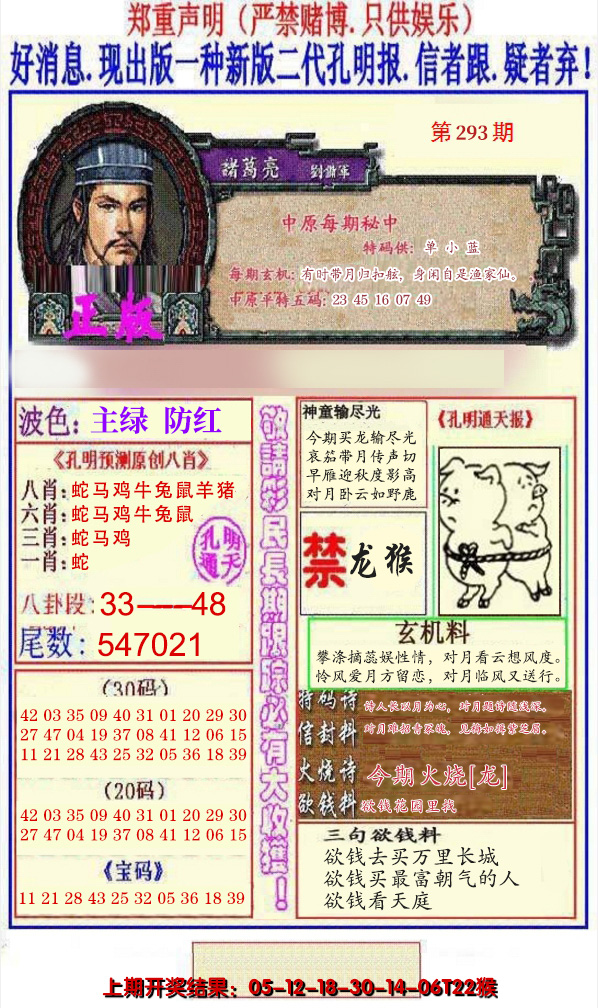 郑重声明（严禁赌博.只供娱乐）
好消息.现出版一种新版二代孔明报.信者跟.疑者弃！
第293期
諸葛亮 劉備軍
中原每期秘中
特码供：单小蓝
每期玄机：有时带月归扣舷，身闲自是渔家仙。
中原平特五码：23 45 16 07 49
正版
波色：主绿 防红
《孔明预测原创八肖》
八肖：蛇马鸡牛兔鼠羊猪
六肖：蛇马鸡牛兔鼠
三肖：蛇马鸡
一肖：蛇
孔明
通天
八卦段：33——48
尾数：547021
（30码）
42 03 35 09 40 31 01 20 29 30
27 47 04 19 37 08 41 12 06 15
11 21 28 43 25 32 05 36 18 39
（20码）
42 03 35 09 40 31 01 20 29 30
27 47 04 19 37 08 41 12 06 15
《宝码》
11 21 28 43 25 32 05 36 18 39
敬請彩民長期跟踪必有大收獲！
神童输尽光
今期买龙输尽光
哀笳带月传声切
早雁迎秋度影高
对月卧云如野鹿
《孔明通天报》
禁 龙猴
玄机料
攀涤摘蕊娱性情，对月看云想风度。
怜风爱月方留恋，对月临风又送行。
特码诗 诗人长以月为心，对月题诗随浅深。
信封料
火烧诗 今期火烧[龙]
欲钱料 欲钱花园里找
三句欲钱料
欲钱去买万里长城
欲钱买最富朝气的人
欲钱看天庭
上期开奖结果：05-12-18-30-14-06T22猴